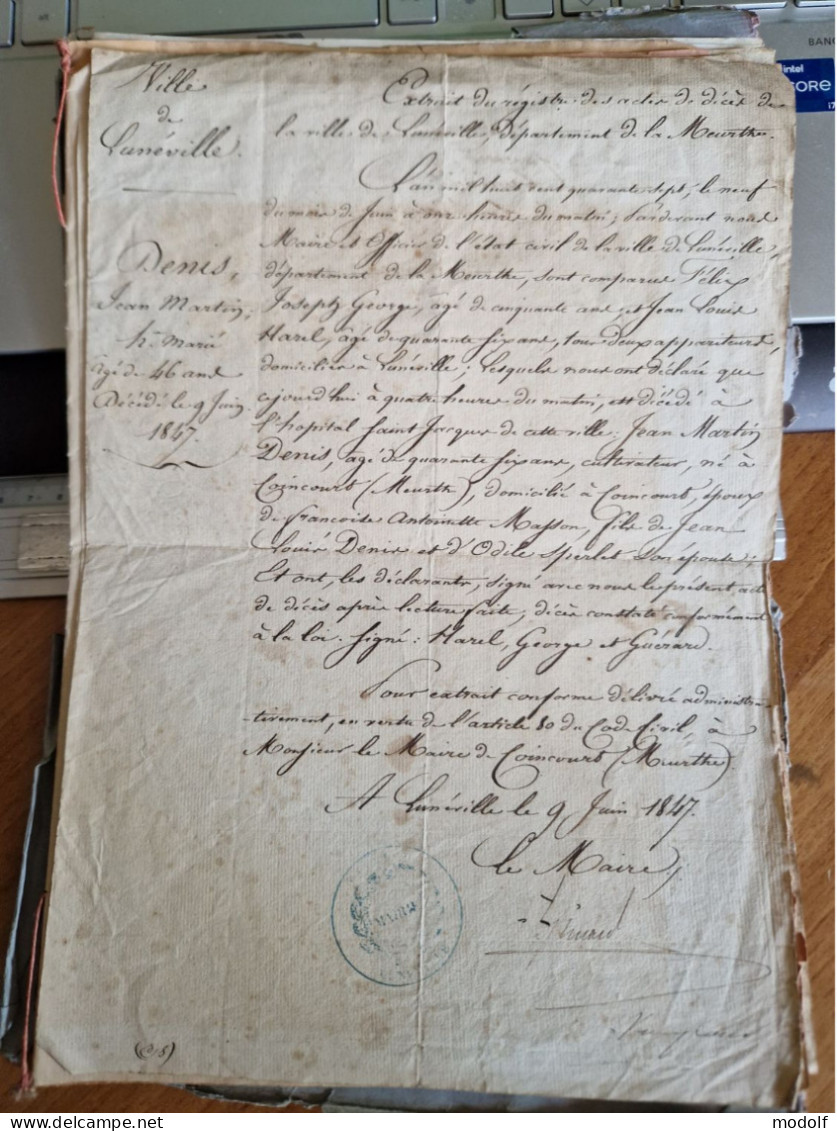 BANG
intel
CORE
i7
Ville
de
Lunéville.
Denis,
Jean Martin,
hme Marié
âgé de 46 ans
Décédé le 9 Juin
1847.
Extrait du régistre des actes de décès de
la ville de Lunéville, département de la Meurthe.
L'an mil huit cent quarante sept, le neuf
du mois de Juin à onze heures du matin; Pardevant nous
Maire et Officier de l'état civil de la ville de Lunéville,
département de la Meurthe, sont comparus Félix
Joseph George, âgé de cinquante ans; et Jean Louis
Harel, âgé de quarante six ans, tous deux appariteurs,
domiciliés à Lunéville; Lesquels nous ont déclaré que
cejourd'hui à quatre heures du matin, est décédé à
l'hopital Saint Jacques de cette ville, Jean Martin
Denis, âgé de quarante six ans, cultivateur, né à
Coincourt (Meurthe), domicilié à Coincourt, époux
de Françoise Antoinette Masson, fils de Jean
Louis Denis et d'Odile Sperlet son épouse;
Et ont, les déclarants, signé avec nous le présent acte
de décès après lecture faite; décès constaté conformément
à la loi. Signé: Harel, George et Guérard.
Pour extrait conforme délivré administra-
-tivement, en vertu de l'article 80 du Code Civil, à
Monsieur le Maire de Coincourt (Meurthe).
A Lunéville le 9 Juin 1847.
Le Maire,
MAIRIE
modolf
delcampe.net
modolf